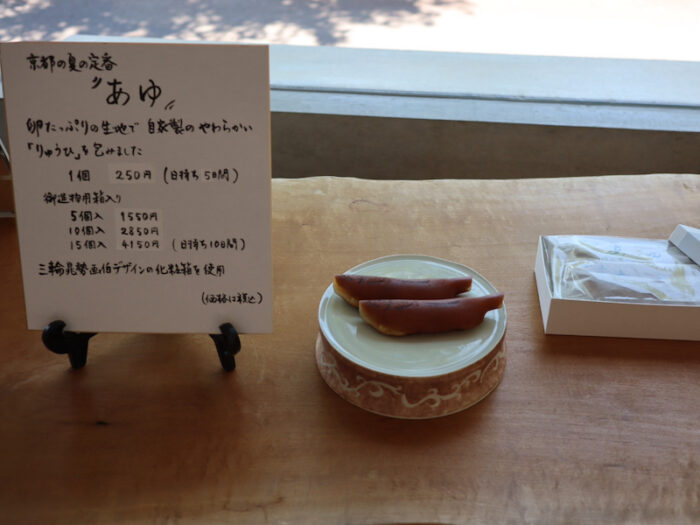 京都の夏の定番
"あゆ"
卵たっぷりの生地で 自家製のやわらかい
「りゅうひ」を包みました
1個 250円 (日持ち5日間)
御進物用箱入り
5個入 1550円
10個入 2850円
15個入 4150円 (日持ち10日間)
三輪晁勢画伯デザインの化粧箱を使用
(価格は税込)